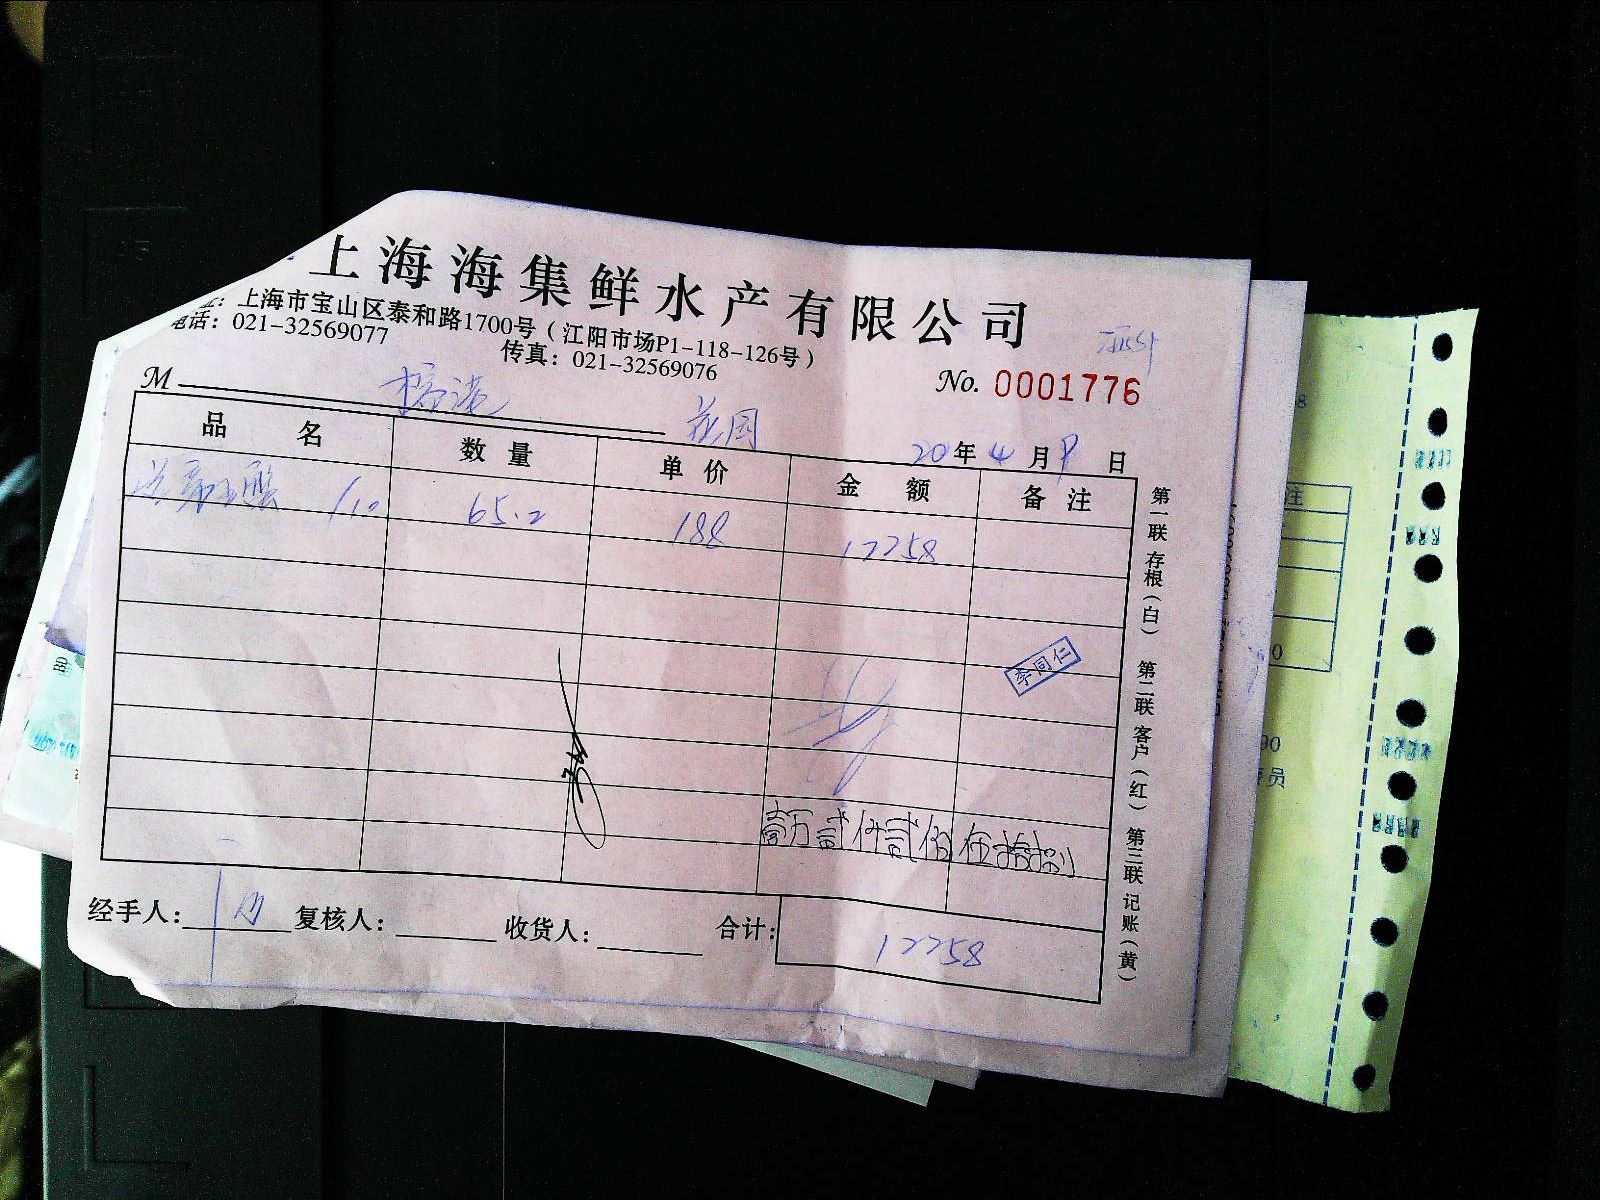 上海海集鲜水产有限公司
址：上海市宝山区泰和路1700号（江阳市场P1-118-126号）
电话：021-32569077 传真：021-32569076
No. 0001776
M
花园
20年4月9日
品名 数量 单价 金额 备注
65.2 188 12258
李同仁
壹万贰仟贰佰伍拾捌
经手人： 复核人： 收货人： 合计：12258
第一联 存根（白） 第二联 客户（红） 第三联 记账（黄）
注